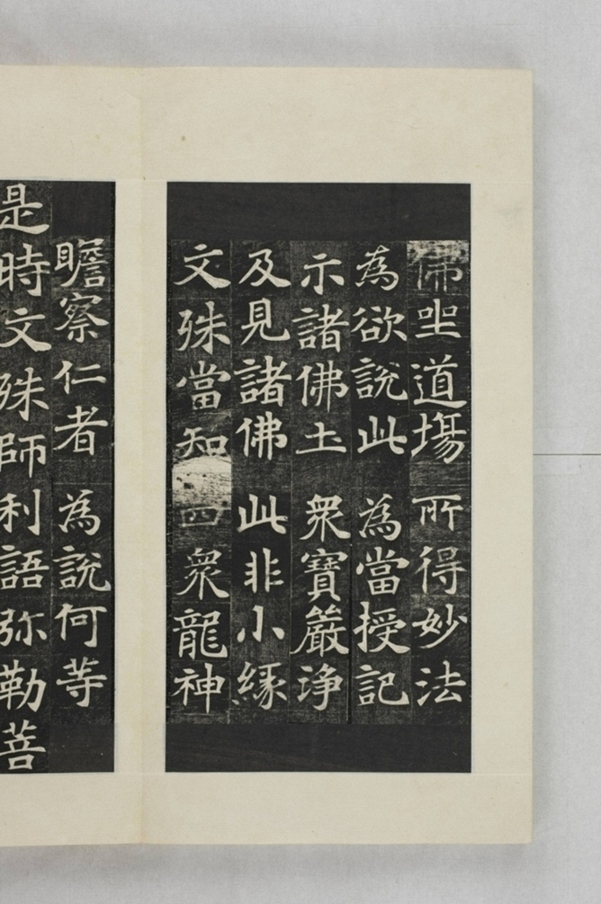 佛坐道場　所得妙法
為欲說此　為當授記
示諸佛土　衆寶嚴淨
及見諸佛　此非小緣
文殊當知　四衆龍神
瞻察仁者　為說何等
是時文殊師利語弥勒菩